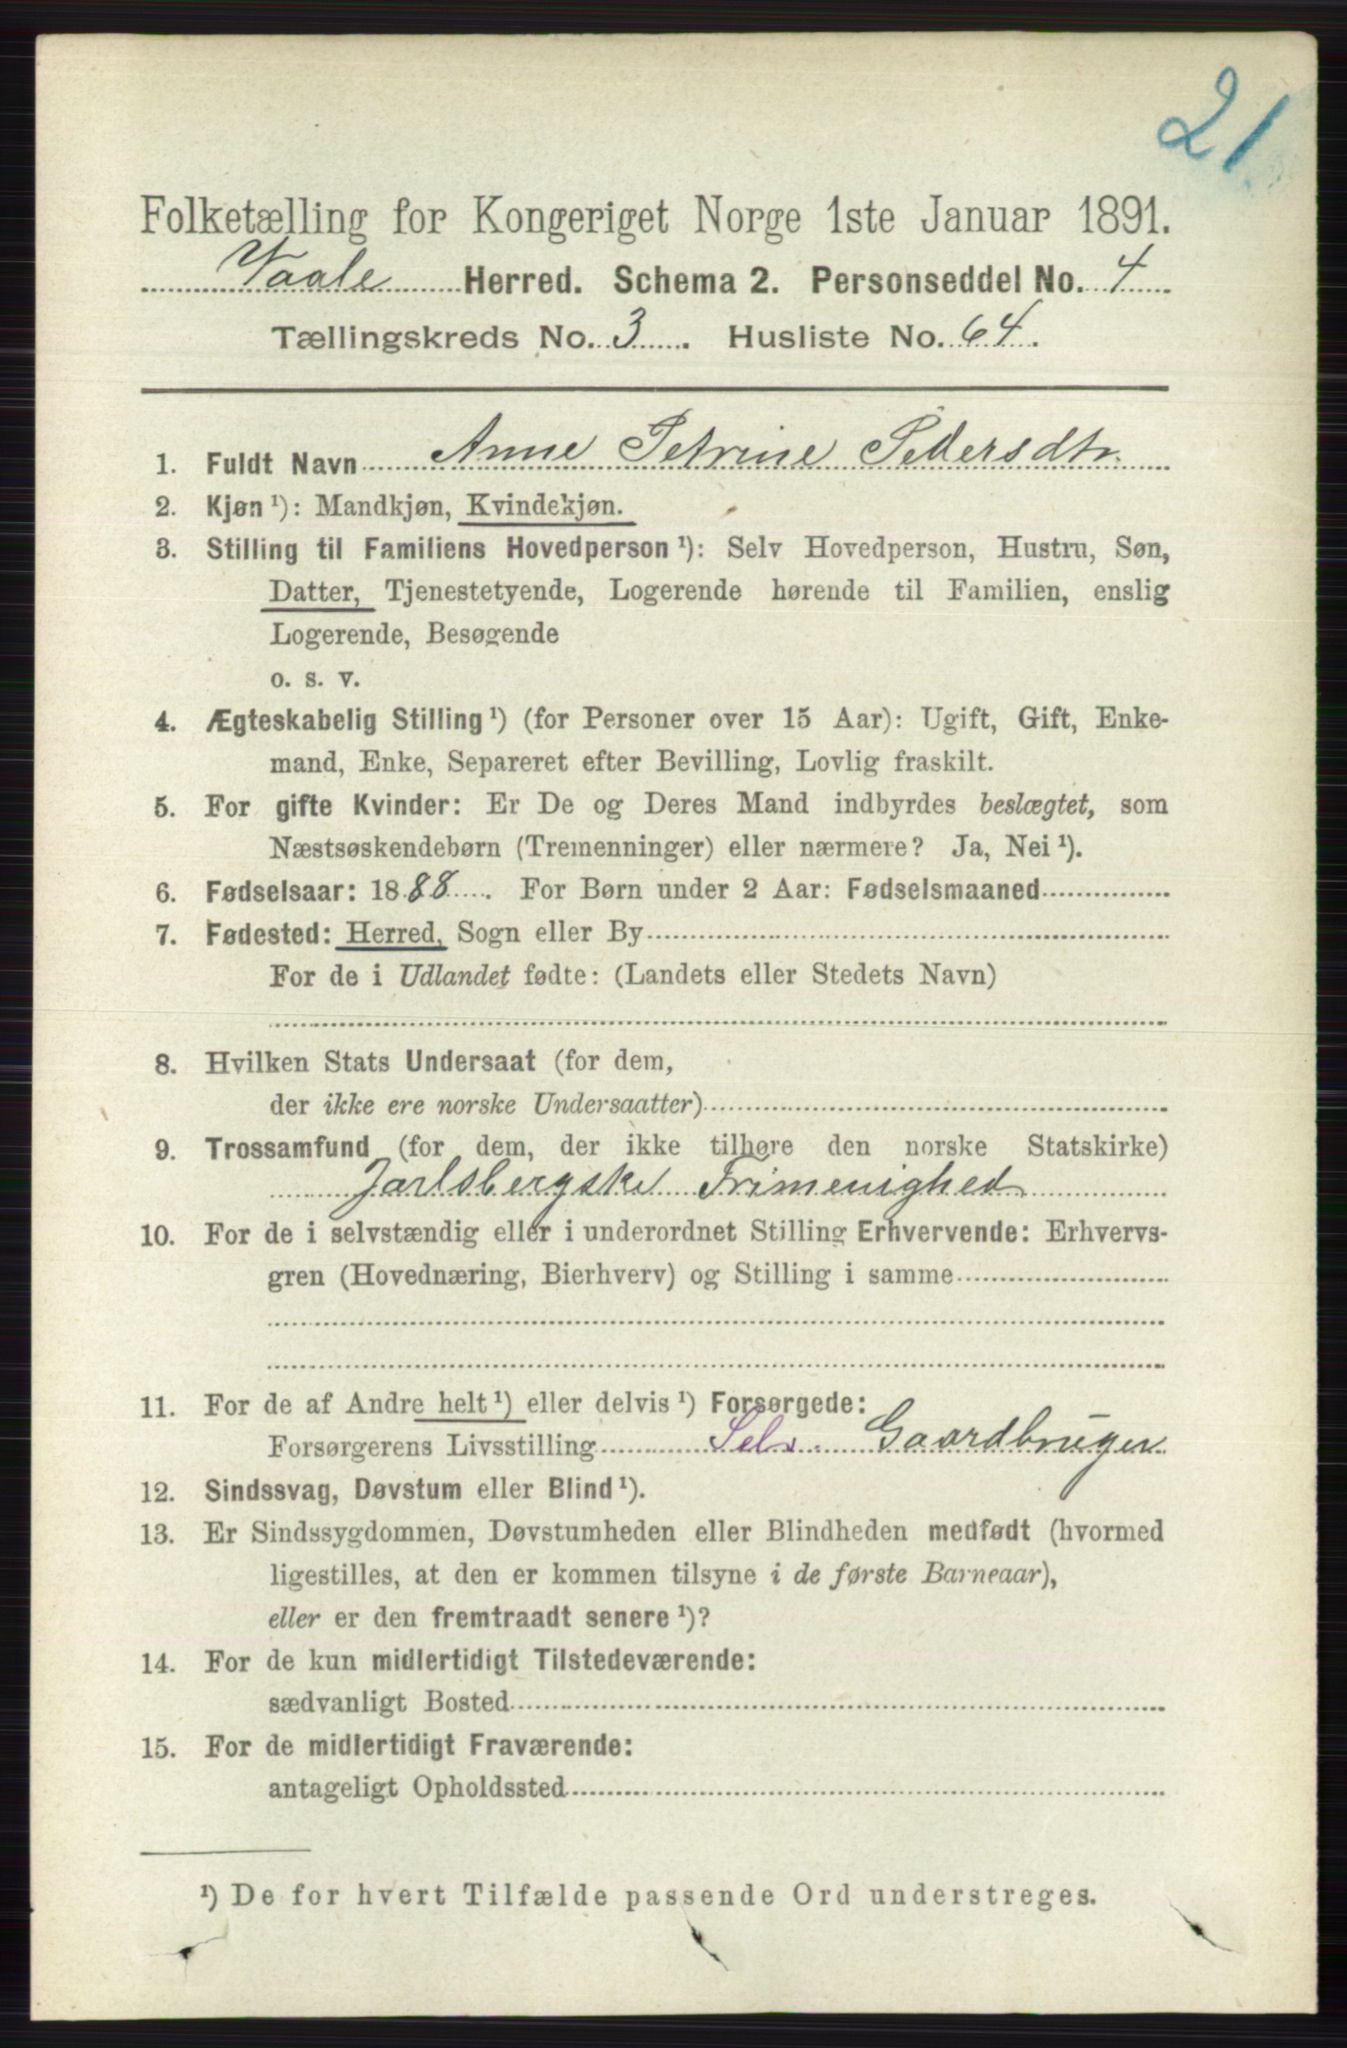 21
Folketælling for Kongeriget Norge 1ste Januar 1891.
Vaale Herred. Schema 2. Personseddel No. 4
Tællingskreds No. 3. Husliste No. 64.
1. Fuldt Navn Anne Petrine Pedersdtr.
2. Kjøn ¹): Mandkjøn, Kvindekjøn.
3. Stilling til Familiens Hovedperson ¹): Selv Hovedperson, Hustru, Søn,
Datter, Tjenestetyende, Logerende hørende til Familien, enslig
Logerende, Besøgende
o. s. v.
4. Ægteskabelig Stilling ¹) (for Personer over 15 Aar): Ugift, Gift, Enke-
mand, Enke, Separeret efter Bevilling, Lovlig fraskilt.
5. For gifte Kvinder: Er De og Deres Mand indbyrdes beslægtet, som
Næstsøskendebørn (Tremenninger) eller nærmere? Ja, Nei ¹).
6. Fødselsaar: 1888. For Børn under 2 Aar: Fødselsmaaned
7. Fødested: Herred, Sogn eller By
For de i Udlandet fødte: (Landets eller Stedets Navn)
8. Hvilken Stats Undersaat (for dem,
der ikke ere norske Undersaatter)
9. Trossamfund (for dem, der ikke tilhøre den norske Statskirke)
Jarlsbergske Frimenighed
10. For de i selvstændig eller i underordnet Stilling Erhvervende: Erhvervs-
gren (Hovednæring, Bierhverv) og Stilling i samme
11. For de af Andre helt ¹) eller delvis ¹) Forsørgede:
Forsørgerens Livsstilling Selv. Gaardbruger
12. Sindssvag, Døvstum eller Blind ¹).
13. Er Sindssygdommen, Døvstumheden eller Blindheden medfødt (hvormed
ligestilles, at den er kommen tilsyne i de første Barneaar),
eller er den fremtraadt senere ¹)?
14. For de kun midlertidigt Tilstedeværende:
sædvanligt Bosted
15. For de midlertidigt Fraværende:
antageligt Opholdssted
¹) De for hvert Tilfælde passende Ord understreges.